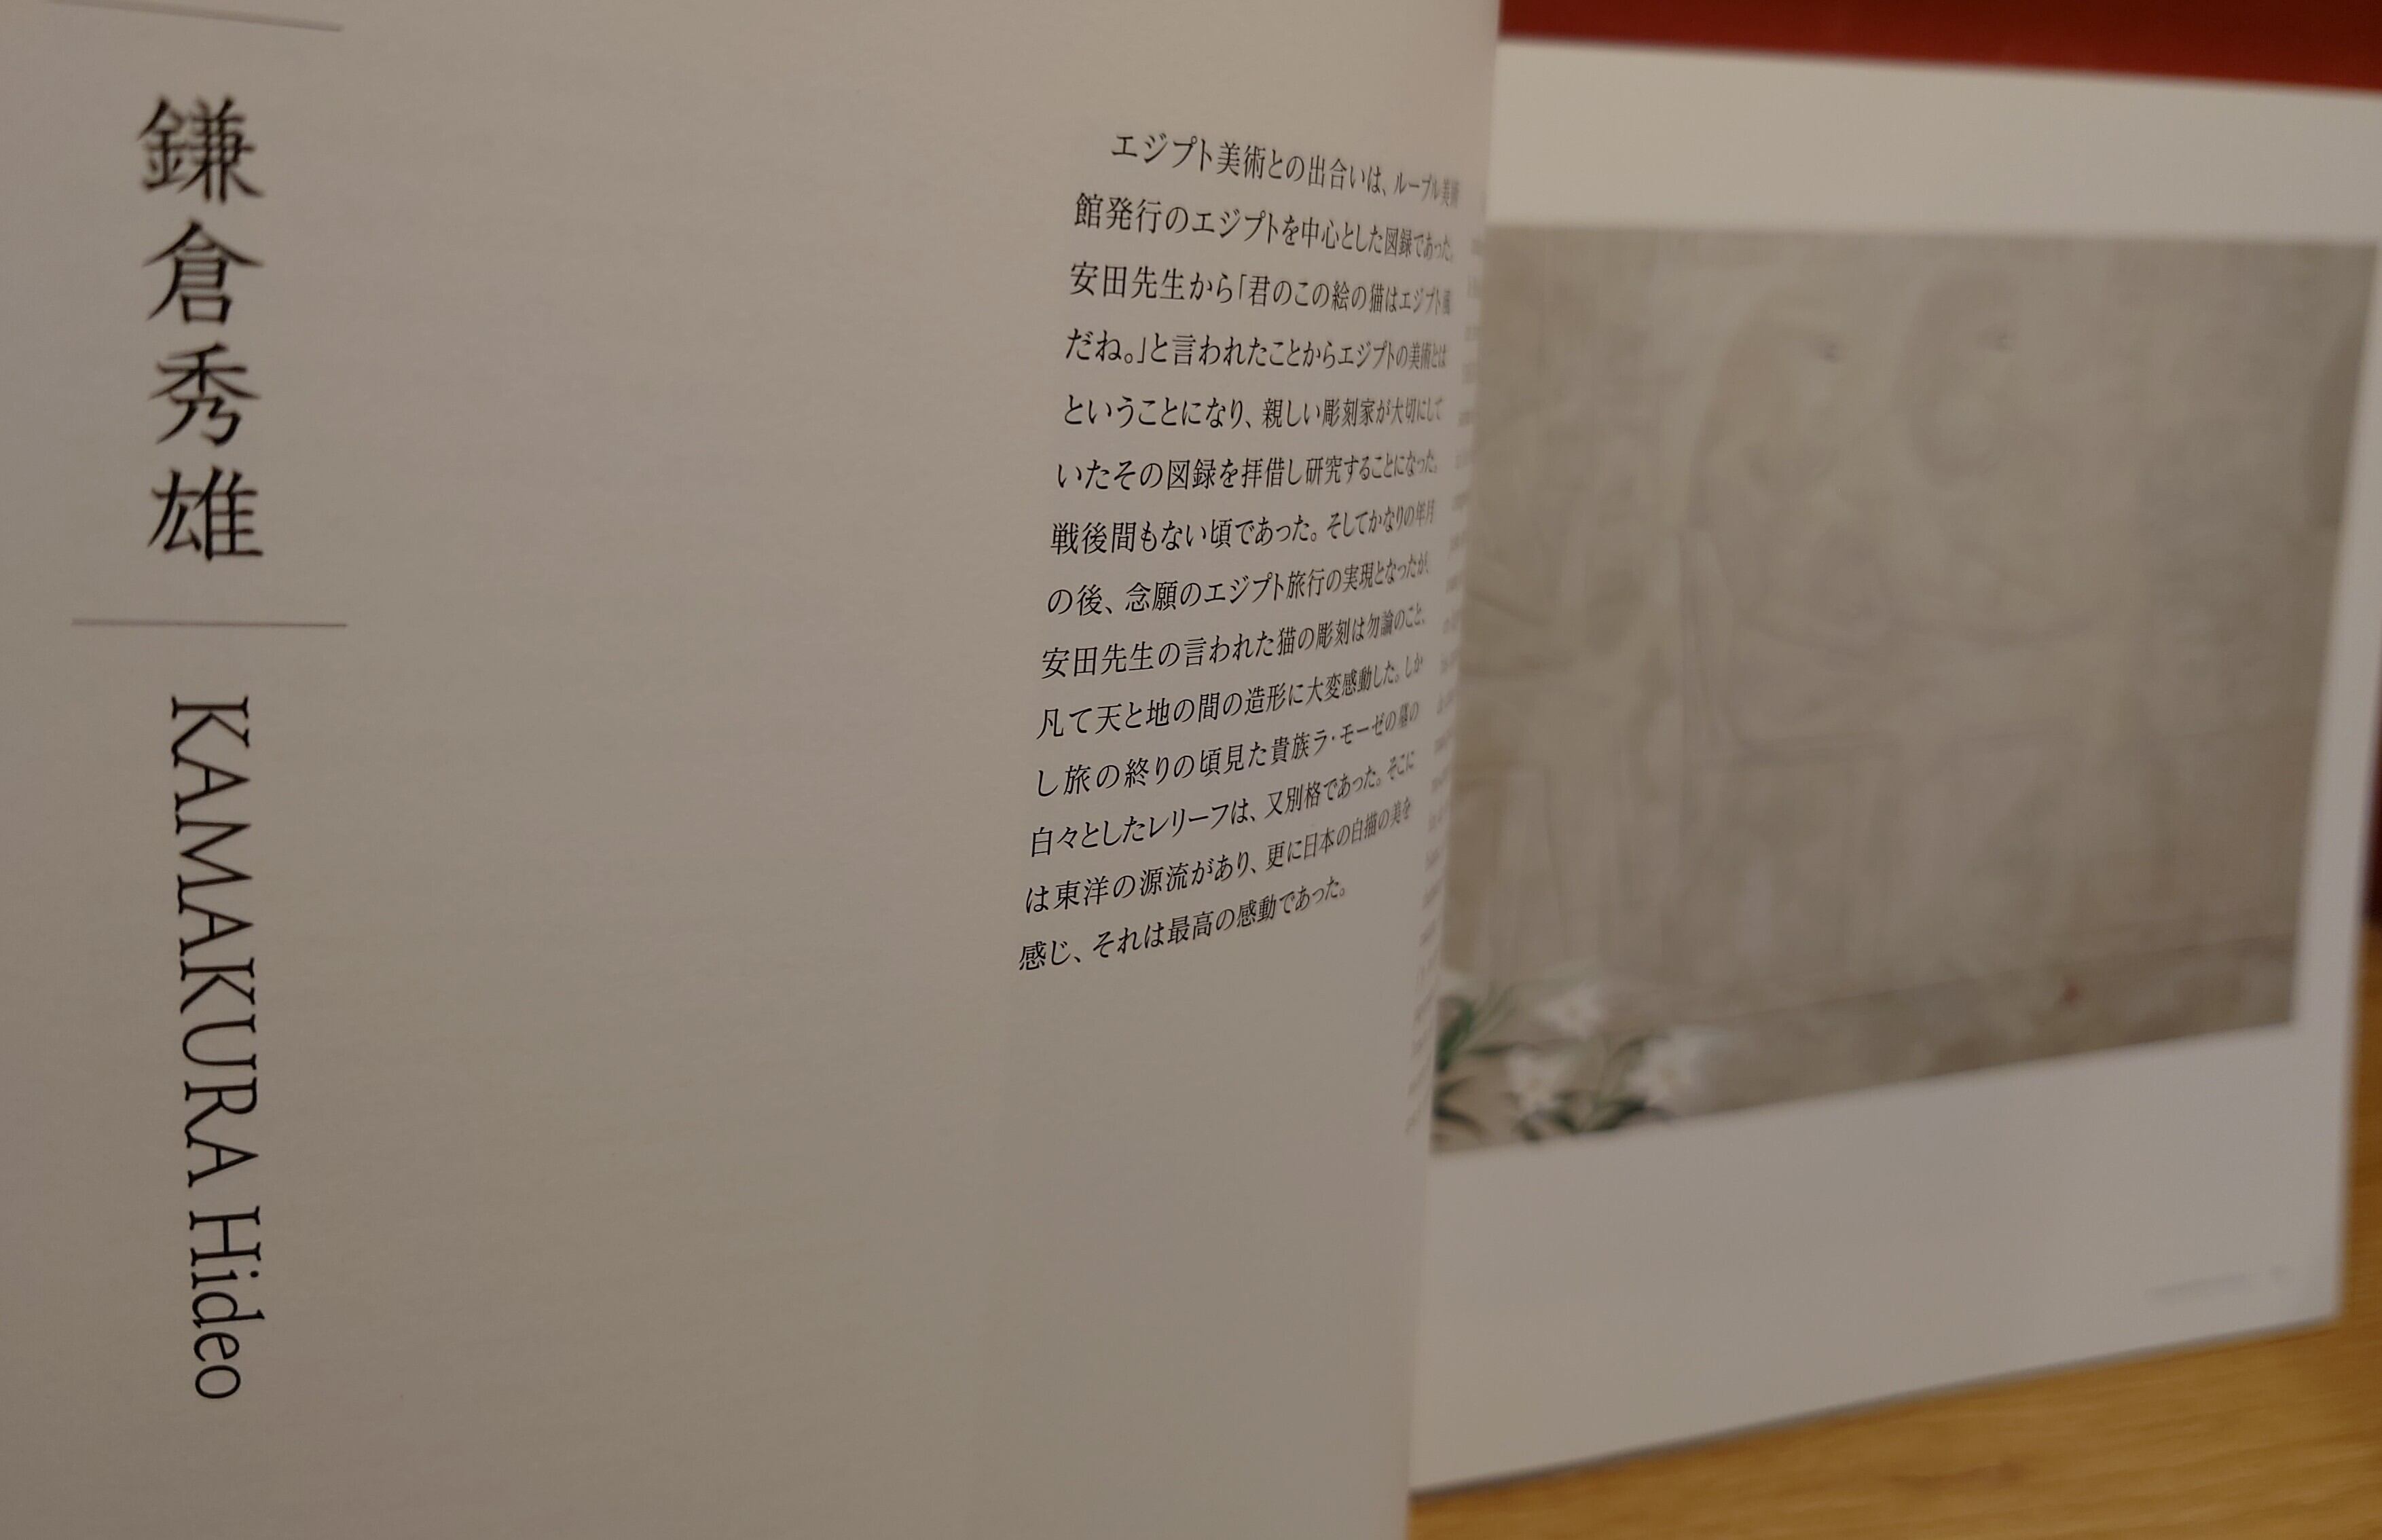 鎌倉秀雄
KAMAKURA Hideo
エジプト美術との出合いは、ルーブル美術
館発行のエジプトを中心とした図録であった。
安田先生から「君のこの絵の猫はエジプト猫
だね。」と言われたことからエジプトの美術とは
ということになり、親しい彫刻家が大切にして
いたその図録を拝借し研究することになった。
戦後間もない頃であった。そしてかなりの年月
の後、念願のエジプト旅行の実現となったが、
安田先生の言われた猫の彫刻は勿論のこと、
凡て天と地の間の造形に大変感動した。しか
し旅の終りの頃見た貴族ラ・モーゼの墓の
白々としたレリーフは、又別格であった。そこに
は東洋の源流があり、更に日本の白描の美を
感じ、それは最高の感動であった。